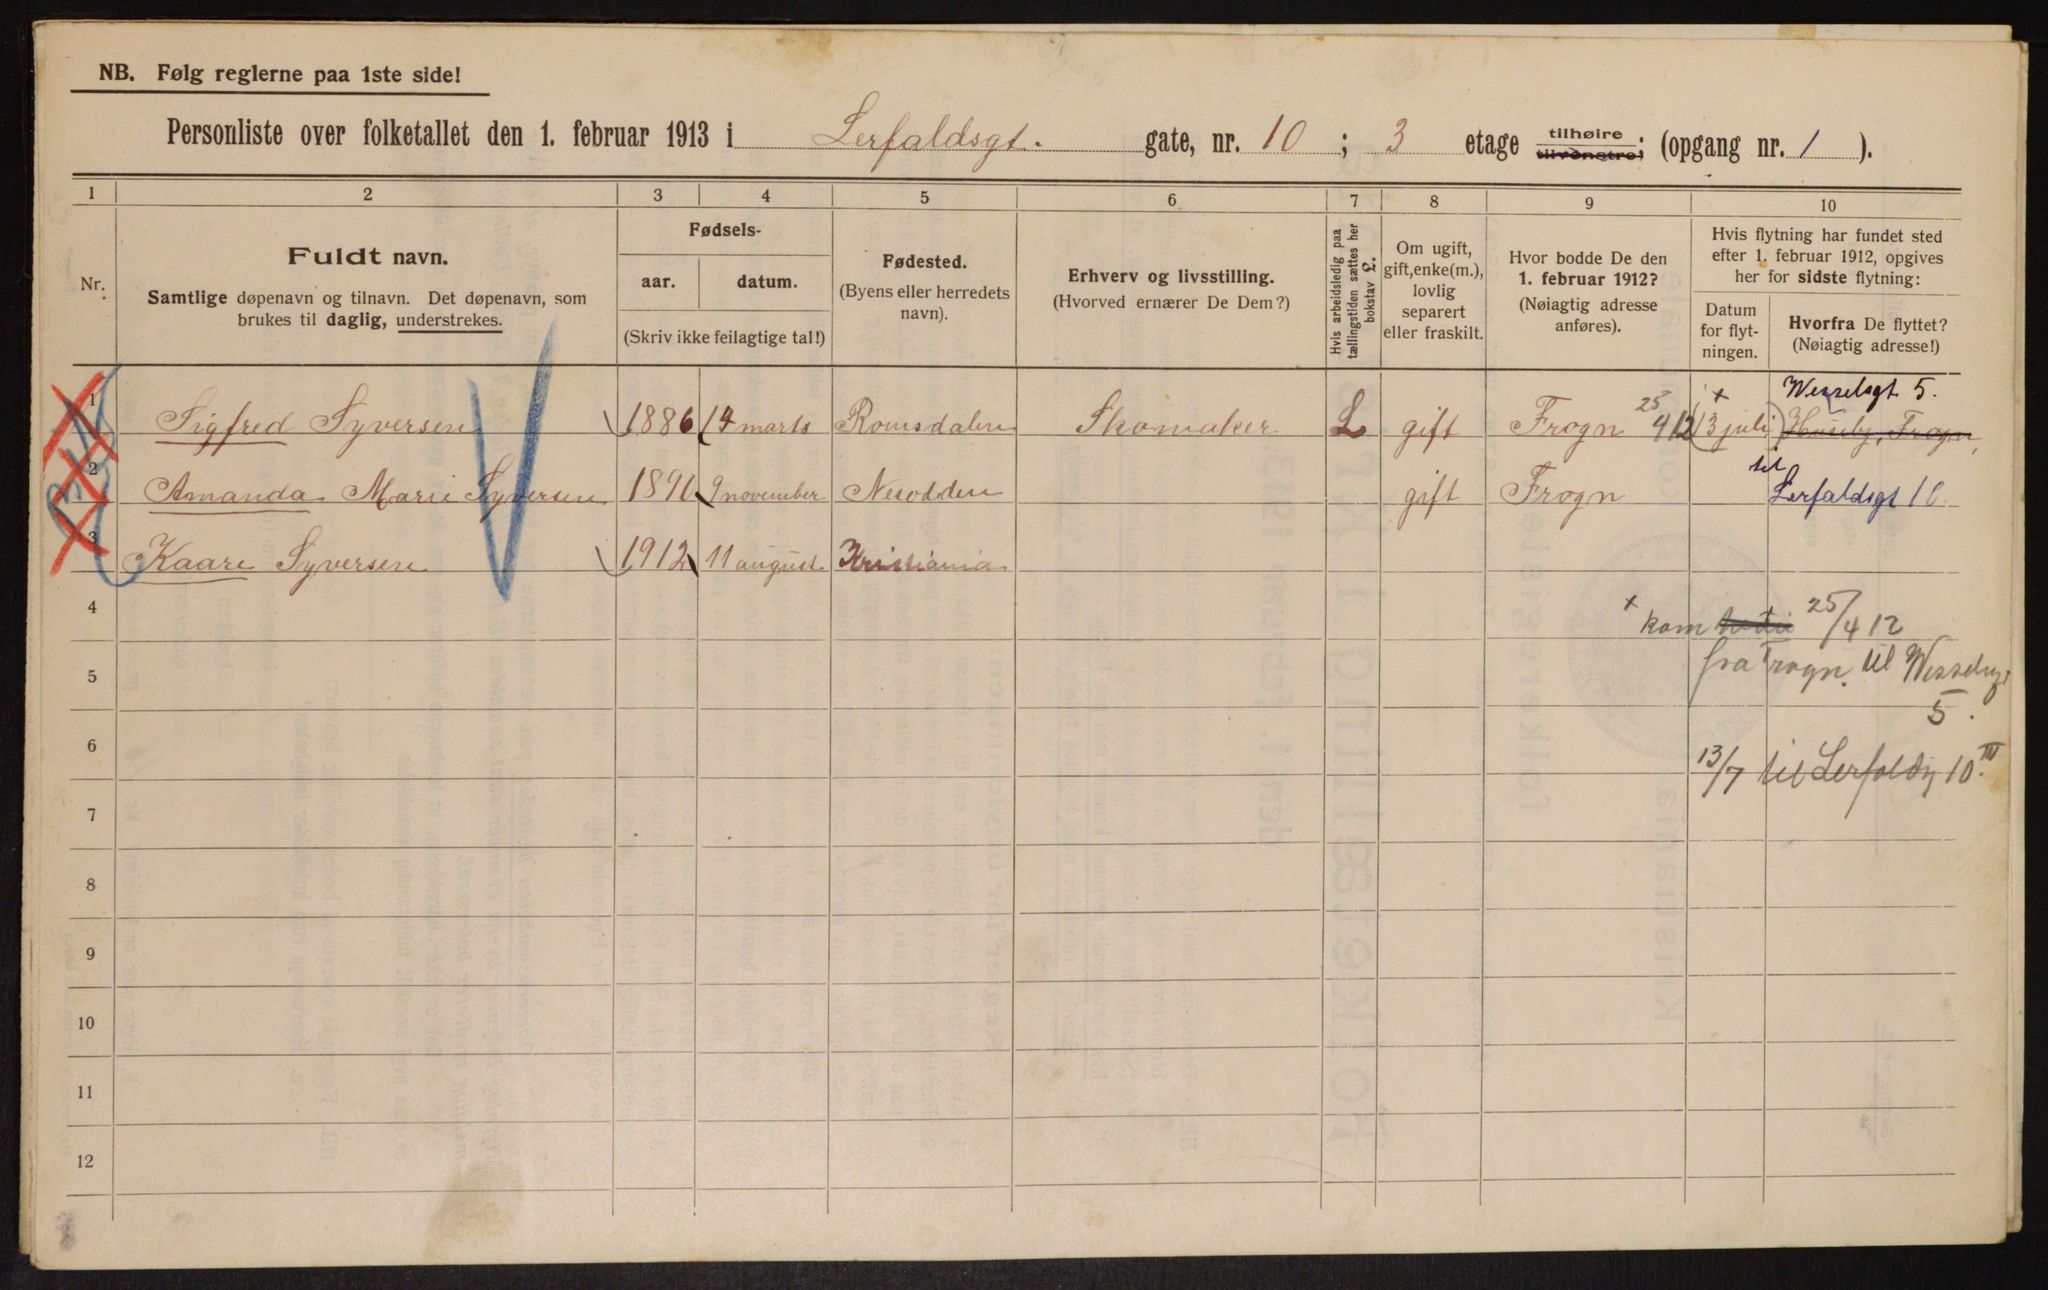 NB. Følg reglerne paa 1ste side!
Personliste over folketallet den 1. februar 1913 i Lerfaldsgt. gate, nr. 10 ; 3 etage tilhøire tilvenstre; (opgang nr. 1 ).
1 2 3 4 5 6 7 8 9 10
Nr.
Fuldt navn.
Samtlige døpenavn og tilnavn. Det døpenavn, som
brukes til daglig, understrekes.
Fødsels-
aar. datum.
(Skriv ikke feilagtige tal!)
Fødested.
(Byens eller herredets
navn).
Erhverv og livsstilling.
(Hvorved ernærer De Dem?)
Hvis arbeidsledig paa
tællingstiden sættes her
bokstav L.
Om ugift,
gift, enke(m.),
lovlig
separert
eller fraskilt.
Hvor bodde De den
1. februar 1912?
(Nøiagtig adresse
anføres).
Hvis flytning har fundet sted
efter 1. februar 1912, opgives
her for sidste flytning:
Datum
for flyt-
ningen.
Hvorfra De flyttet?
(Nøiagtig adresse!)
Wesselsgt 5.
1 Sigfred Syversen 1886 14 marts Romsdalen Skomaker L gift Frogn 25 4 12 13 juli Huseby, Frogn,
til
2 Amanda Marie Syversen 1891 9 november Nesodden gift Frogn Lerfaldsgt 10.
3 Kaare Syversen 1912 11 august Kristiania
4 x kom 25/4 12
5 fra Frogn til Wesselsg.
5.
6 13/7 til Lerfaldsg 10 III
7
8
9
10
11
12